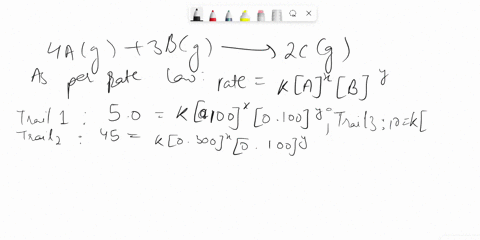 4A(g) + 3B(g) ⟶ 2C(g)
As per Rate law: rate = K[A]^x [B]^y
Trail 1 : 5.0 = K[0.100]^x [0.100]^y ; Trail 3 : 10 = K[
Trail 2 : 45 = K[0.300]^x [0.100]^y